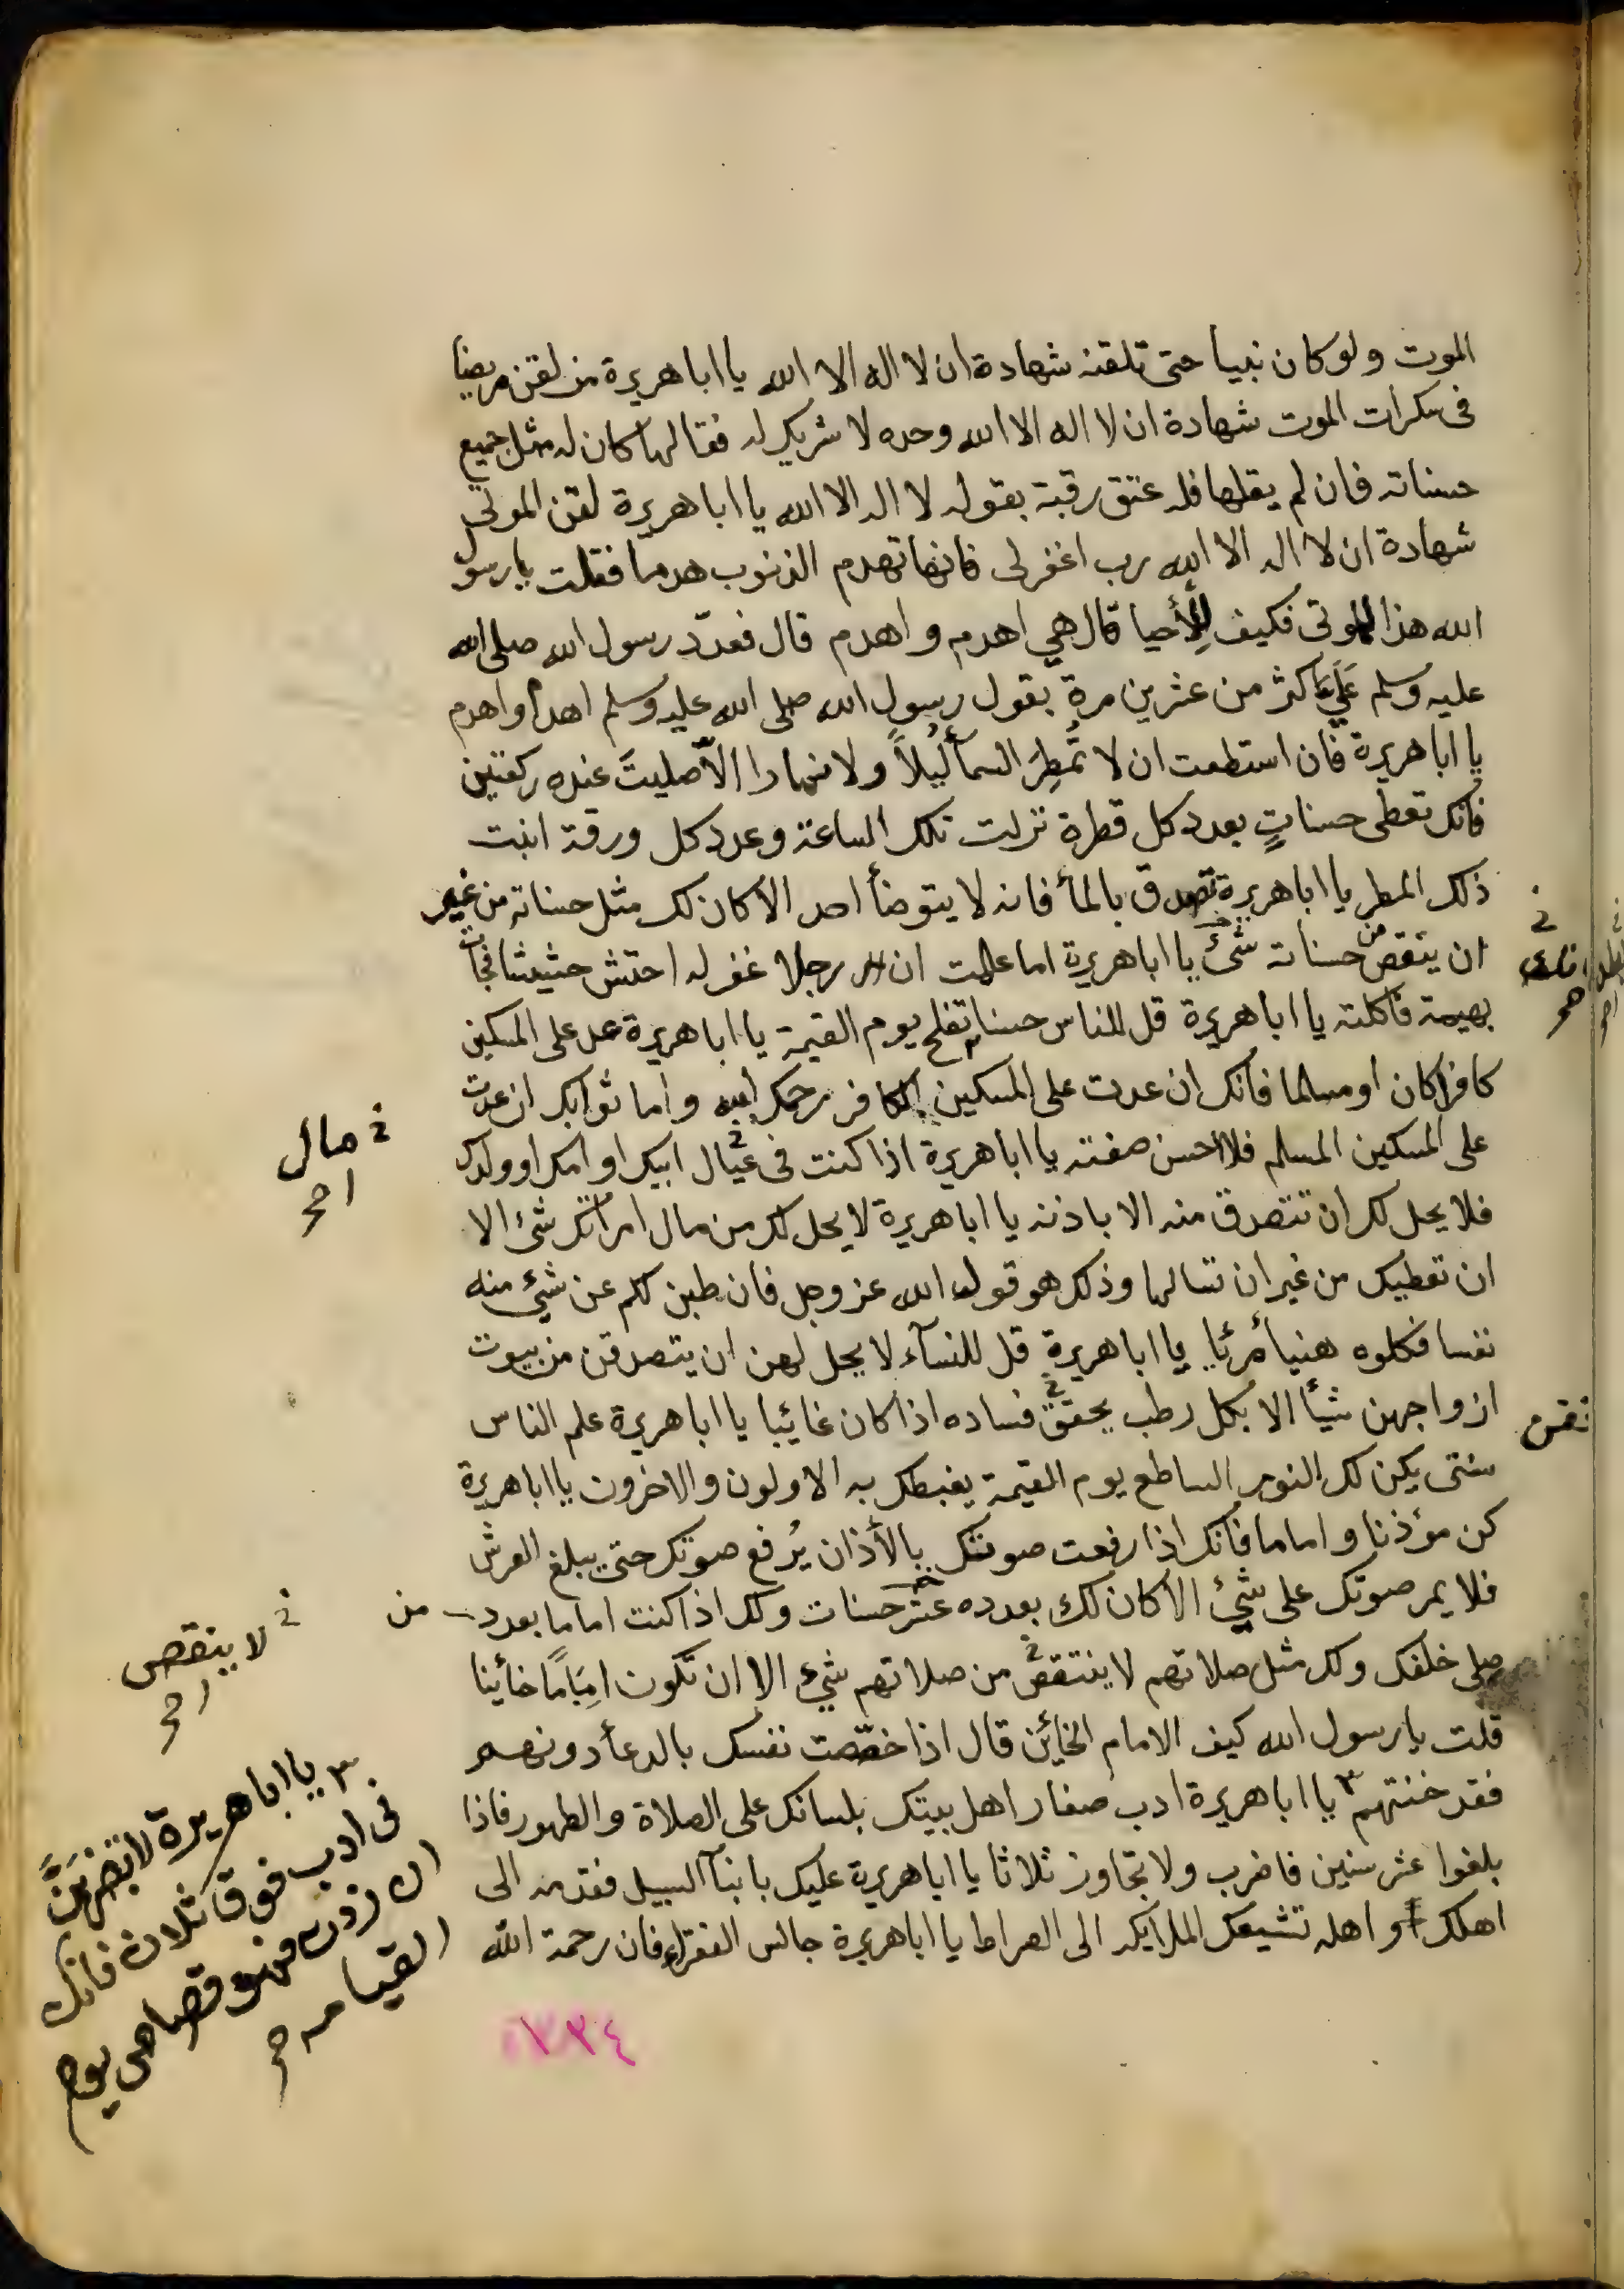 الموت ولو كان نبيا حتى تلقنه شهادة ان لا اله الا الله يا ابا هريرة من لقن مريضا
فى سكرات الموت شهادة ان لا اله الا الله وحده لا شريك له فقالها كان له مثل جميع
حسناته فان لم يقلها فله عتق رقبة بقوله لا اله الا الله يا ابا هريرة لقن الموتى
شهادة ان لا اله الا الله رب اغفر لى فانها تهدم الذنوب هدما فقلت يا رسول
الله هذا للموتى فكيف للأحيا قال هي اهدم و اهدم قال فعدّد رسول الله صلى الله
عليه وسلم عَلَيَّ اكثر من عشرين مرة بقول رسول الله صلى الله عليه وسلم اهدم واهدم
يا ابا هريرة فان استطعت ان لا تُمطِرَ السمأ ليلاً ولا نهارا الاّ صليتَ عنده ركعتين
فانك تعطى حسناتٍ بعدد كل قطرة نزلت تلك الساعة وعدد كل ورقة انبت
ذلك المطر يا ابا هريرة تصدق بالمأ فانه لا يتوضأ احد الا كان لك مثل حسناته من غير
ان ينقص من حسناته شئ يا ابا هريرة اما علمت ان رجلا غفر له احتش حشيشا فجأت
بهيمة فاكلته يا ابا هريرة قل للناس حسنا تفلح يوم القيمة يا ابا هريرة عد على المسكين
كافرا كان او مسلما فانك ان عدت على المسكين الكافر رحمك الله و اما ثوابك ان عدت
على المسكين المسلم فلا احسن صفته يا ابا هريرة اذا كنت فى عيال ابيك او امك او ولدك
فلا يحل لك ان تتصدق منه الا باذنه يا ابا هريرة لا يحل لك من مال امراتك شئ الا
ان تعطيك من غير ان تسالها وذلك هو قول الله عز وجل فان طبن لكم عن شئ منه
نفسا فكلوه هنيأ مرئا يا ابا هريرة قل للنسآء لا يحل لهن ان يتصدقن من بيوت
ازواجهن شيأ الا بكل رطب يحقق فساده اذا كان غايبا يا ابا هريرة علم الناس
سنتى يكن لك النور الساطع يوم القيمة يغبطك به الاولون والاخرون يا ابا هريرة
كن مؤذنا و اماما فانك اذا رفعت صوتك بالأذان يُرفع صوتك حتى يبلغ العرش
فلا يمر صوتك على شئ الا كان لك بعدده عشر حسنات ولك اذا كنت اماما بعدد من
صلى خلفك ولك مثل صلاتهم لا ينتقص من صلاتهم شئ الا ان تكون امامًا خائنا
قلت يا رسول الله كيف الامام الخائن قال اذا خصّصت نفسك بالدعأ دونهم
فقد خنتهم ٣ يا ابا هريرة ادب صغار اهل بيتك بلسانك على الصلاة والطهور فاذا
بلغوا عشر سنين فاضرب ولا تجاوز ثلاثا يا ابا هريرة عليك بابنآ السبيل فقدمه الى
اهلك او اهله تشيعك الملايكة الى الصراط يا ابا هريرة جالس الفقراء فان رحمة الله
خ مال
اصح
خ لا ينقص
اصح
٣ يا ابا هريرة لا تضربنَّ
فى ادب فوق ثلاث فانك
ان زدت فهو قصاص يوم
القيامه صح